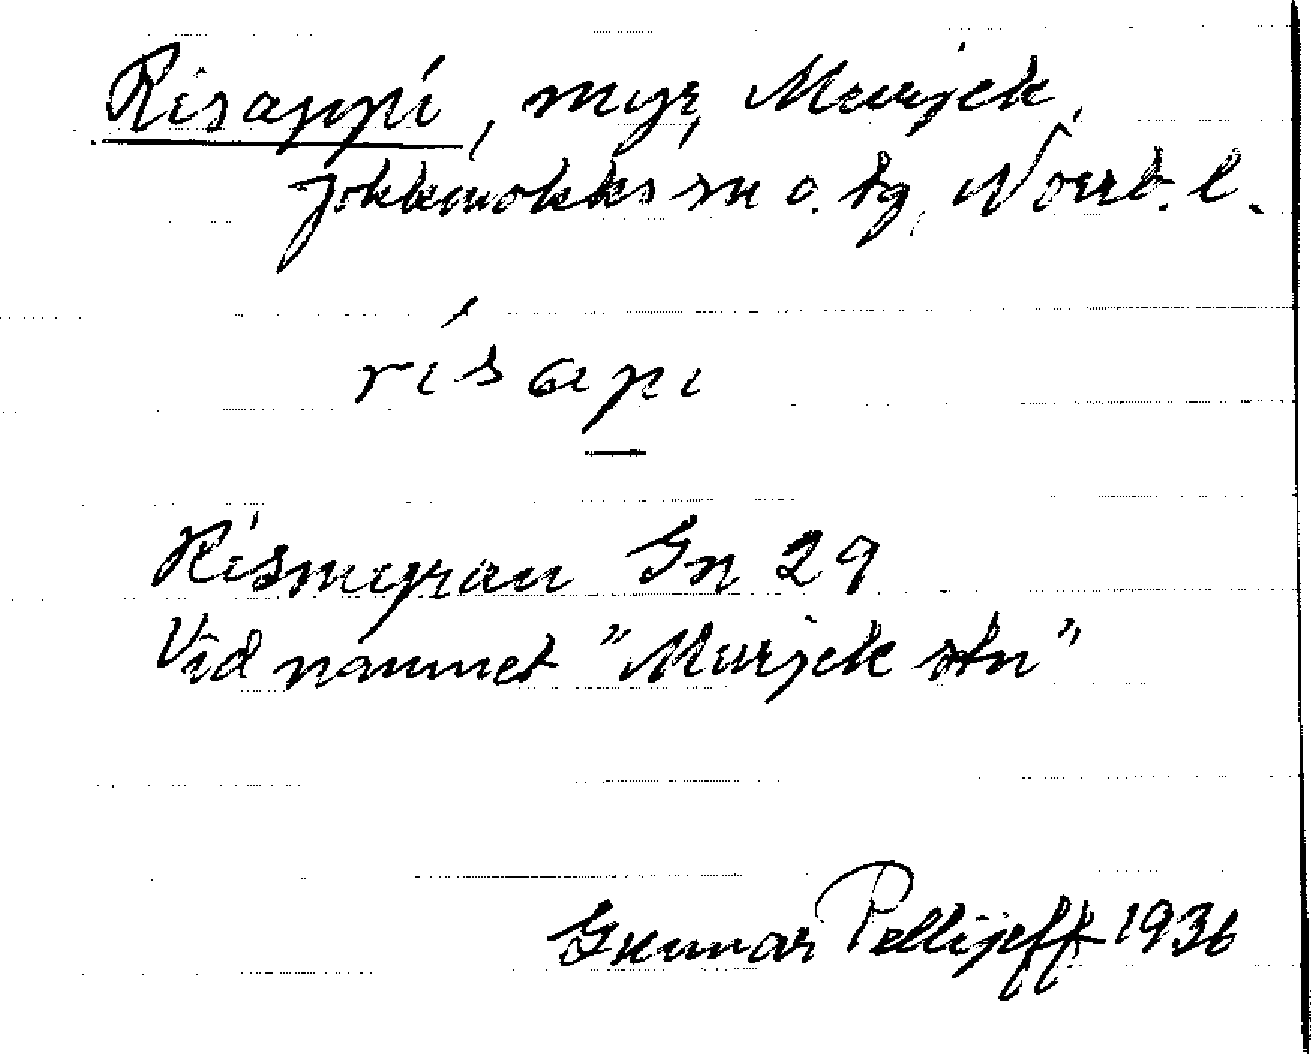 Risappi, myr, Murjek,
Jokkmokks sn o. tg, Norrb. l.
rísapi
Rismyran Gn 29
Vid namnet "Murjek stn"
Gunnar Pellijeff 1936